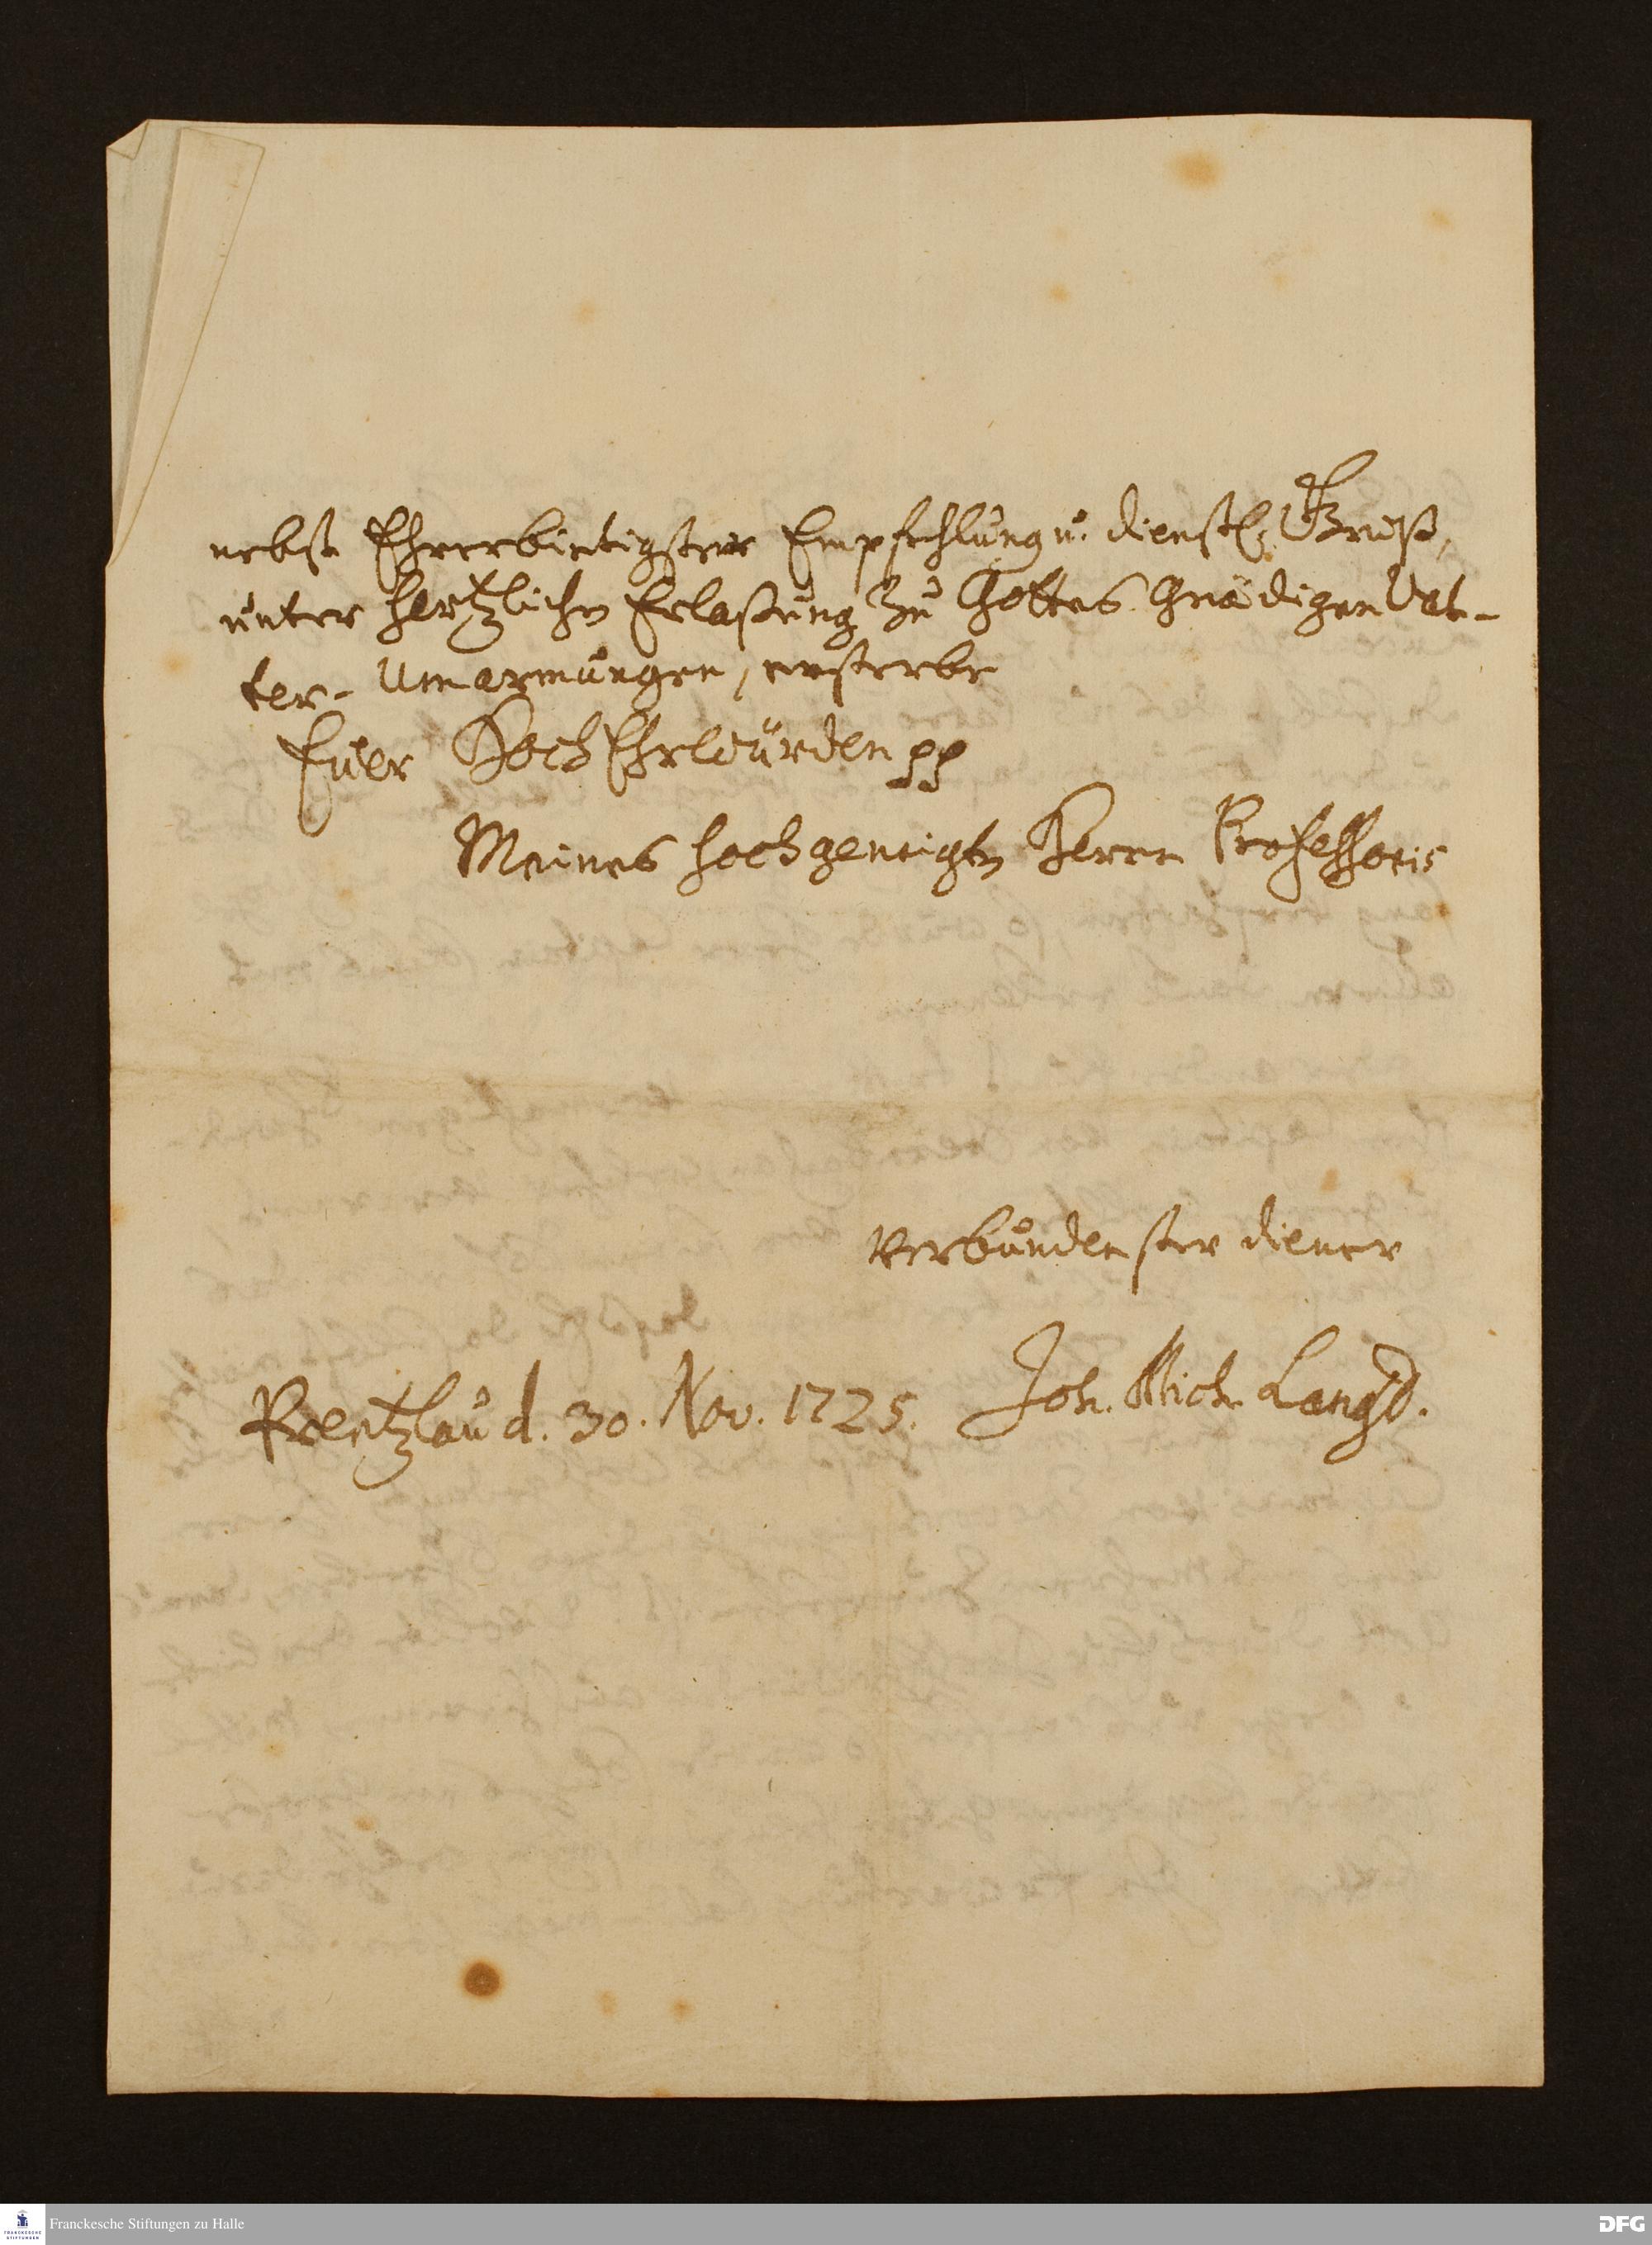 nebst Ehrerbietigster Empfehlung u. dienstl. Gruß,
unter hertzlichn Erlaßung zu Gottes Gnädigen Vat-
ter- Umarmungen, ersterbe
Euer HochEhrwürden pp
Meines hochgeneigtn Herrn Professoris
verbundenster diener
Prentzlau d. 30. Nov. 1725. Joh. Mich. Lang D.
Franckesche Stiftungen zu Halle
FRANCKESCHE STIFTUNGEN
DFG